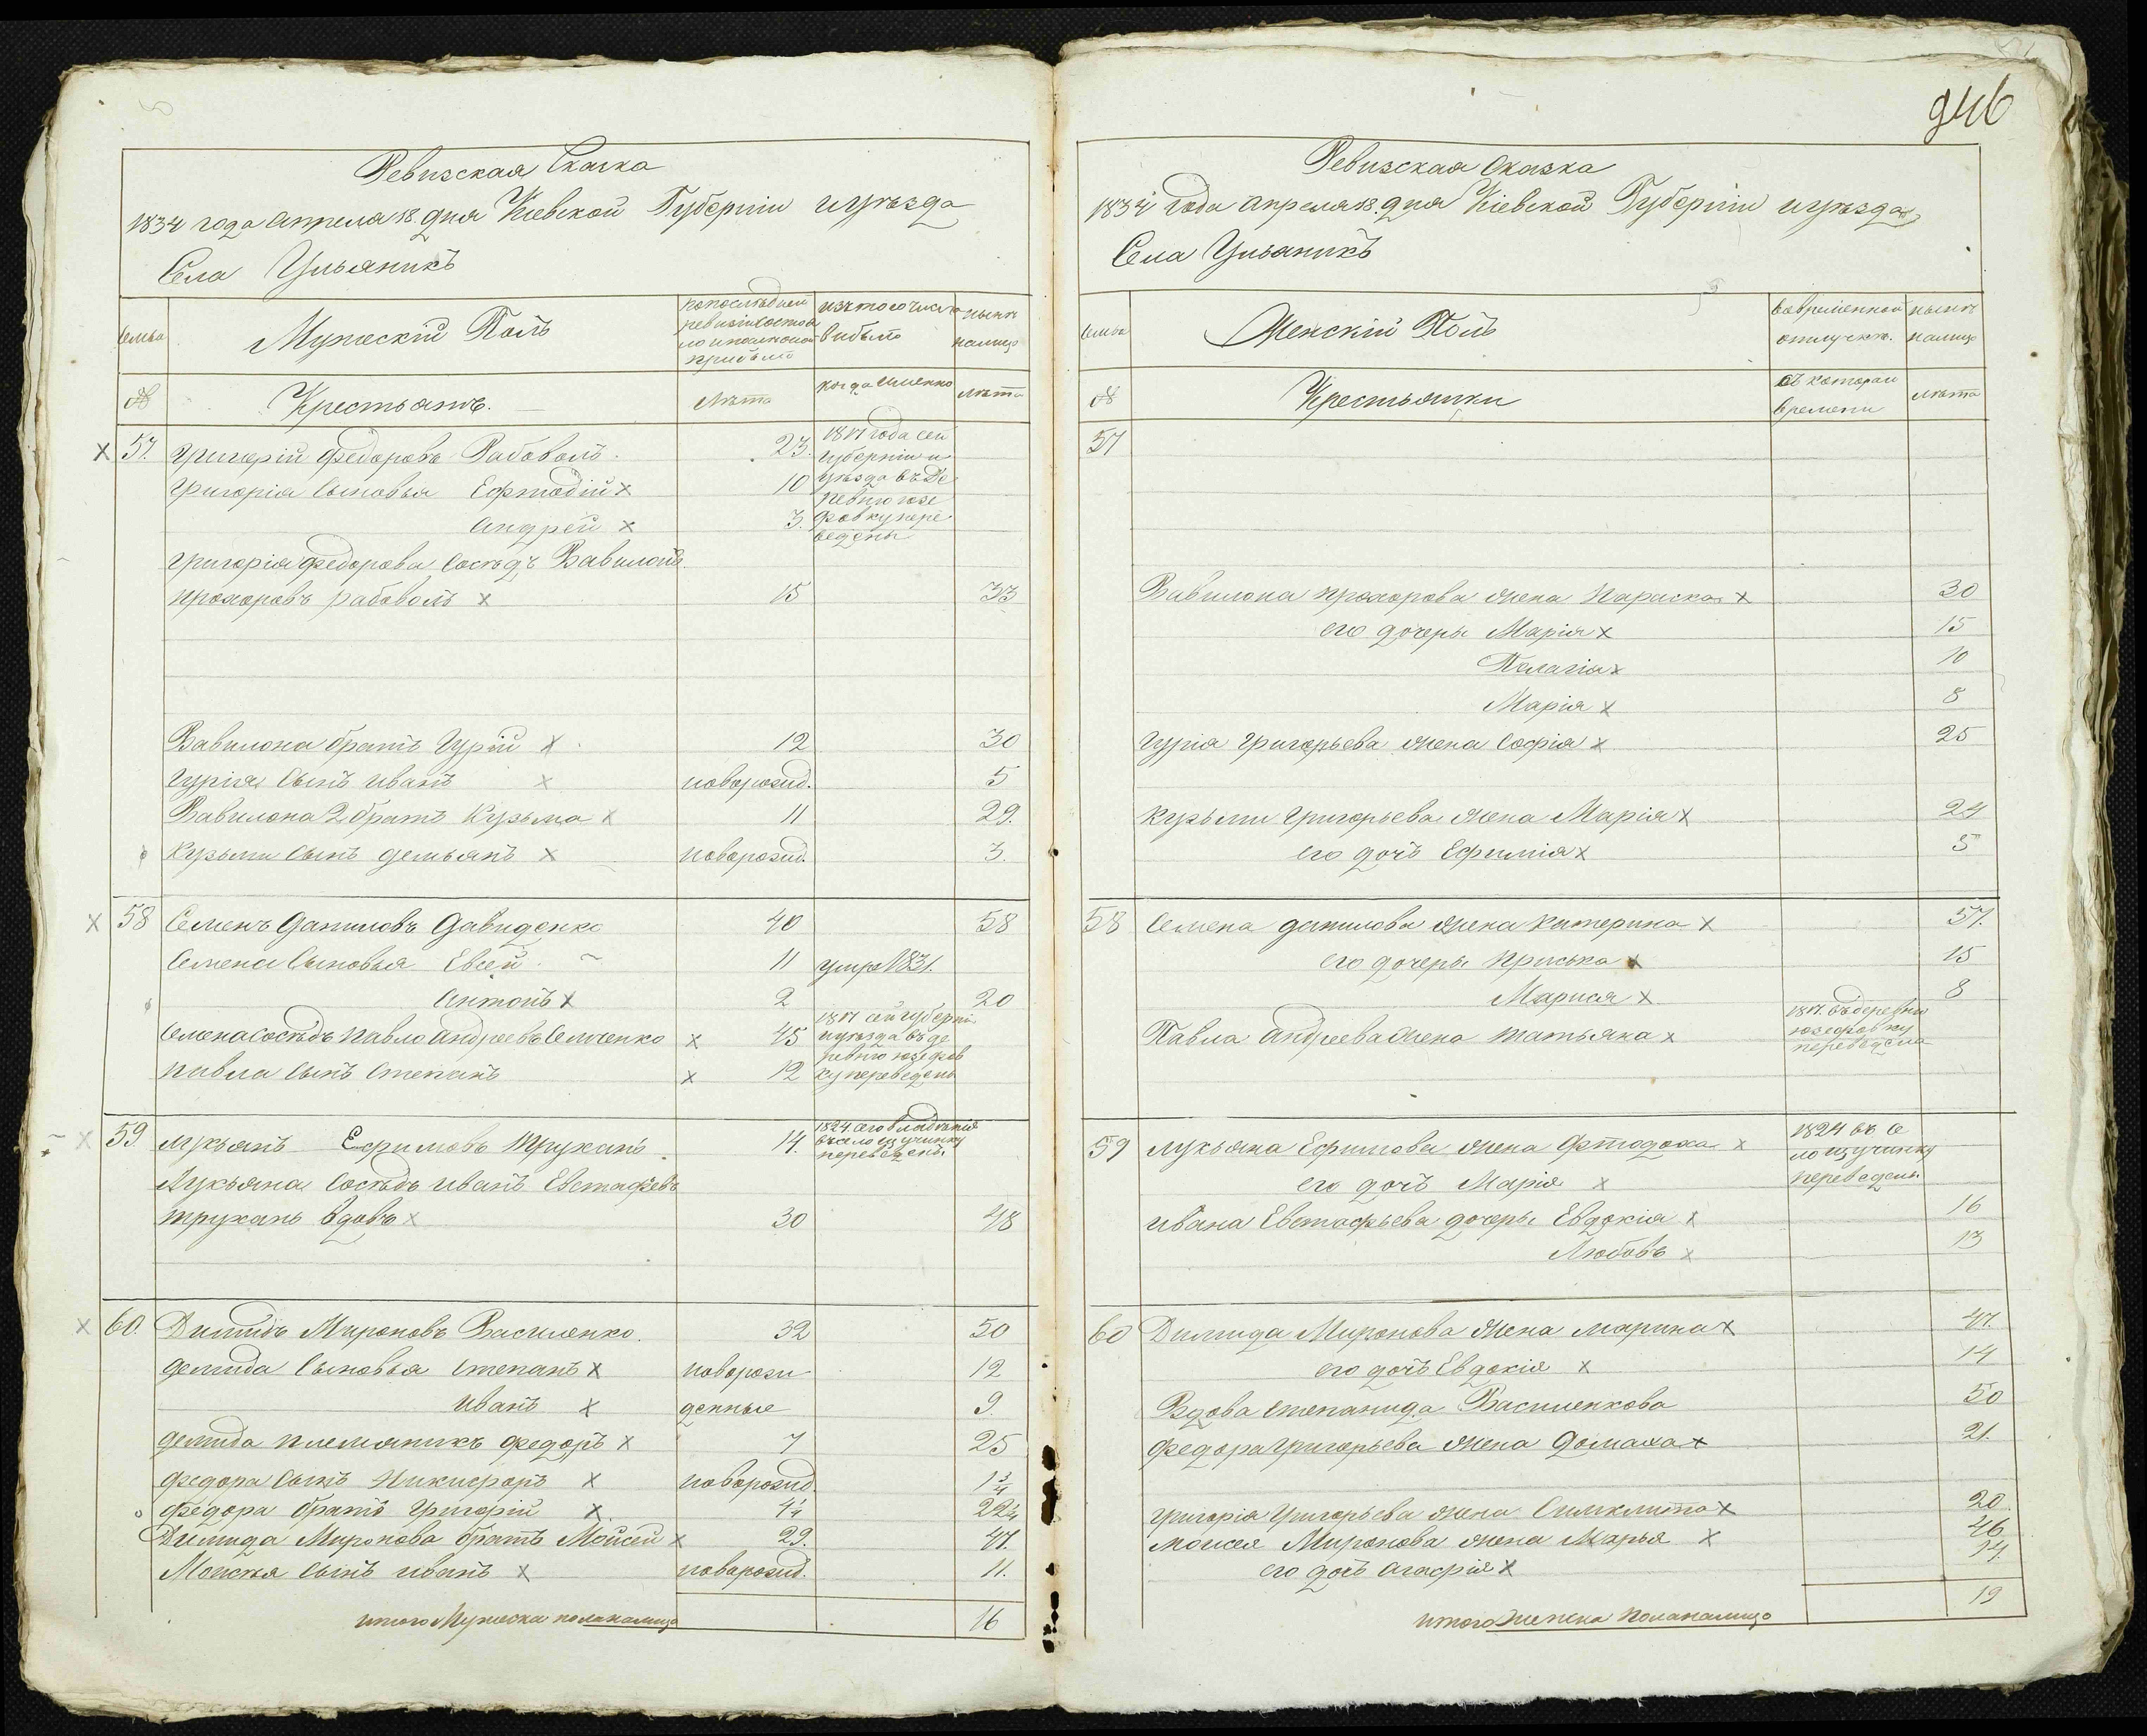 946
Ревизская Сказка
1834 года апреля 18. дня Кіевской Губерніи и уѣзда
Села Ульяникъ
Семьи
Мужескій Полъ
изъ того числа выбыло
нынѣ налицо
№
Крестьянъ.
Лѣта
когда именно
Лѣта
57. Григорій Федоровъ Рабоволъ. 23. 1817 года сей
губерніи и
Григорія Сыновья Ефтодій х 10 уѣзда въ де
ревню юзе
Андрей х 3. фовку пере
ведены
Григорія Федорова Сосѣдъ Вавилонъ
Прохоровъ рабоволъ х 15 33
Вавилона братъ Гурій х 12 30
Гурія Сынъ иванъ х новорожд. 5
Вавилона 2 братъ Кузьма х 11 29.
Кузьми Сынъ демьянъ х новорожд. 3.
х 58 Семенъ Даниловъ Давиденко 40 58
Семена Сыновья Евсей 11 умре 1831.
Антонъ х 2 20
Семена Сосѣдъ Павло Андреевъ Семченко х 45 1817 сей губерніи
и уѣзда въ де
ревню юзефов
Павла Сынъ Степанъ х 12 ку переведены
х 59. Лукьянъ Ефимовъ Трухань 14. 1824
въ село
переведены
Лукьяна Сосѣдъ иванъ Евстафьевъ
трухань вдовъ х 30 48
х 60. Димидъ Мироновъ Василенко. 32 50
демида Сыновья Степанъ х новорож 12
иванъ х денные 9.
демида племяникъ федоръ х 7 25
федора Сынъ Никифоръ х новорожд. 1 3/4
федора братъ Григорій х 4 1/4 22 1/4
Димида Миронова братъ Мойсей х 29. 47.
Моисея Сынъ иванъ х новорожд. 11.
итого Мужеска пола налицо 16
Ревизская Сказка
1834 года апреля 18. дня Кіевской Губерніи и уѣзда
Села Ульяникъ
Семьи
Женскій Полъ
во временной отлучкѣ.
нынѣ налицо
№
Крестьянки
съ котораго времени
Лѣта
57
Вавилона прохорова жена Параска х 30
его дочеры Марія х 15
Палагія х 10
Марія х 8
Гурія Григорьева жена Софія х 25
Кузьми Григорьева жена Марія х 24
его дочъ Ефимія х 5
58 Семена данилова жена Катерина х 57.
его дочеры Приська х 15
Марися х 8
Павла Андреева жена татьяна х 1817. въ деревню
юзефовку
переведена
59 Лукьяна Ефимова жена Фтодоха х 1824 въ се
ло
его дочъ Марія х переведены
ивана Евстафьева дочеры Евдокія х 16
Любовъ х 13
60 Димида Миронова жена марина х 47.
его дочъ Евдокія х 14
Вдова степанида Василенкова 50
федора григорьева жена Домаха х 21.
Григорія Григорьева жена Симклита х 20.
Моисея Миронова жена Марья х 46
его дочъ агафія х 14.
итого женска пола налицо 19